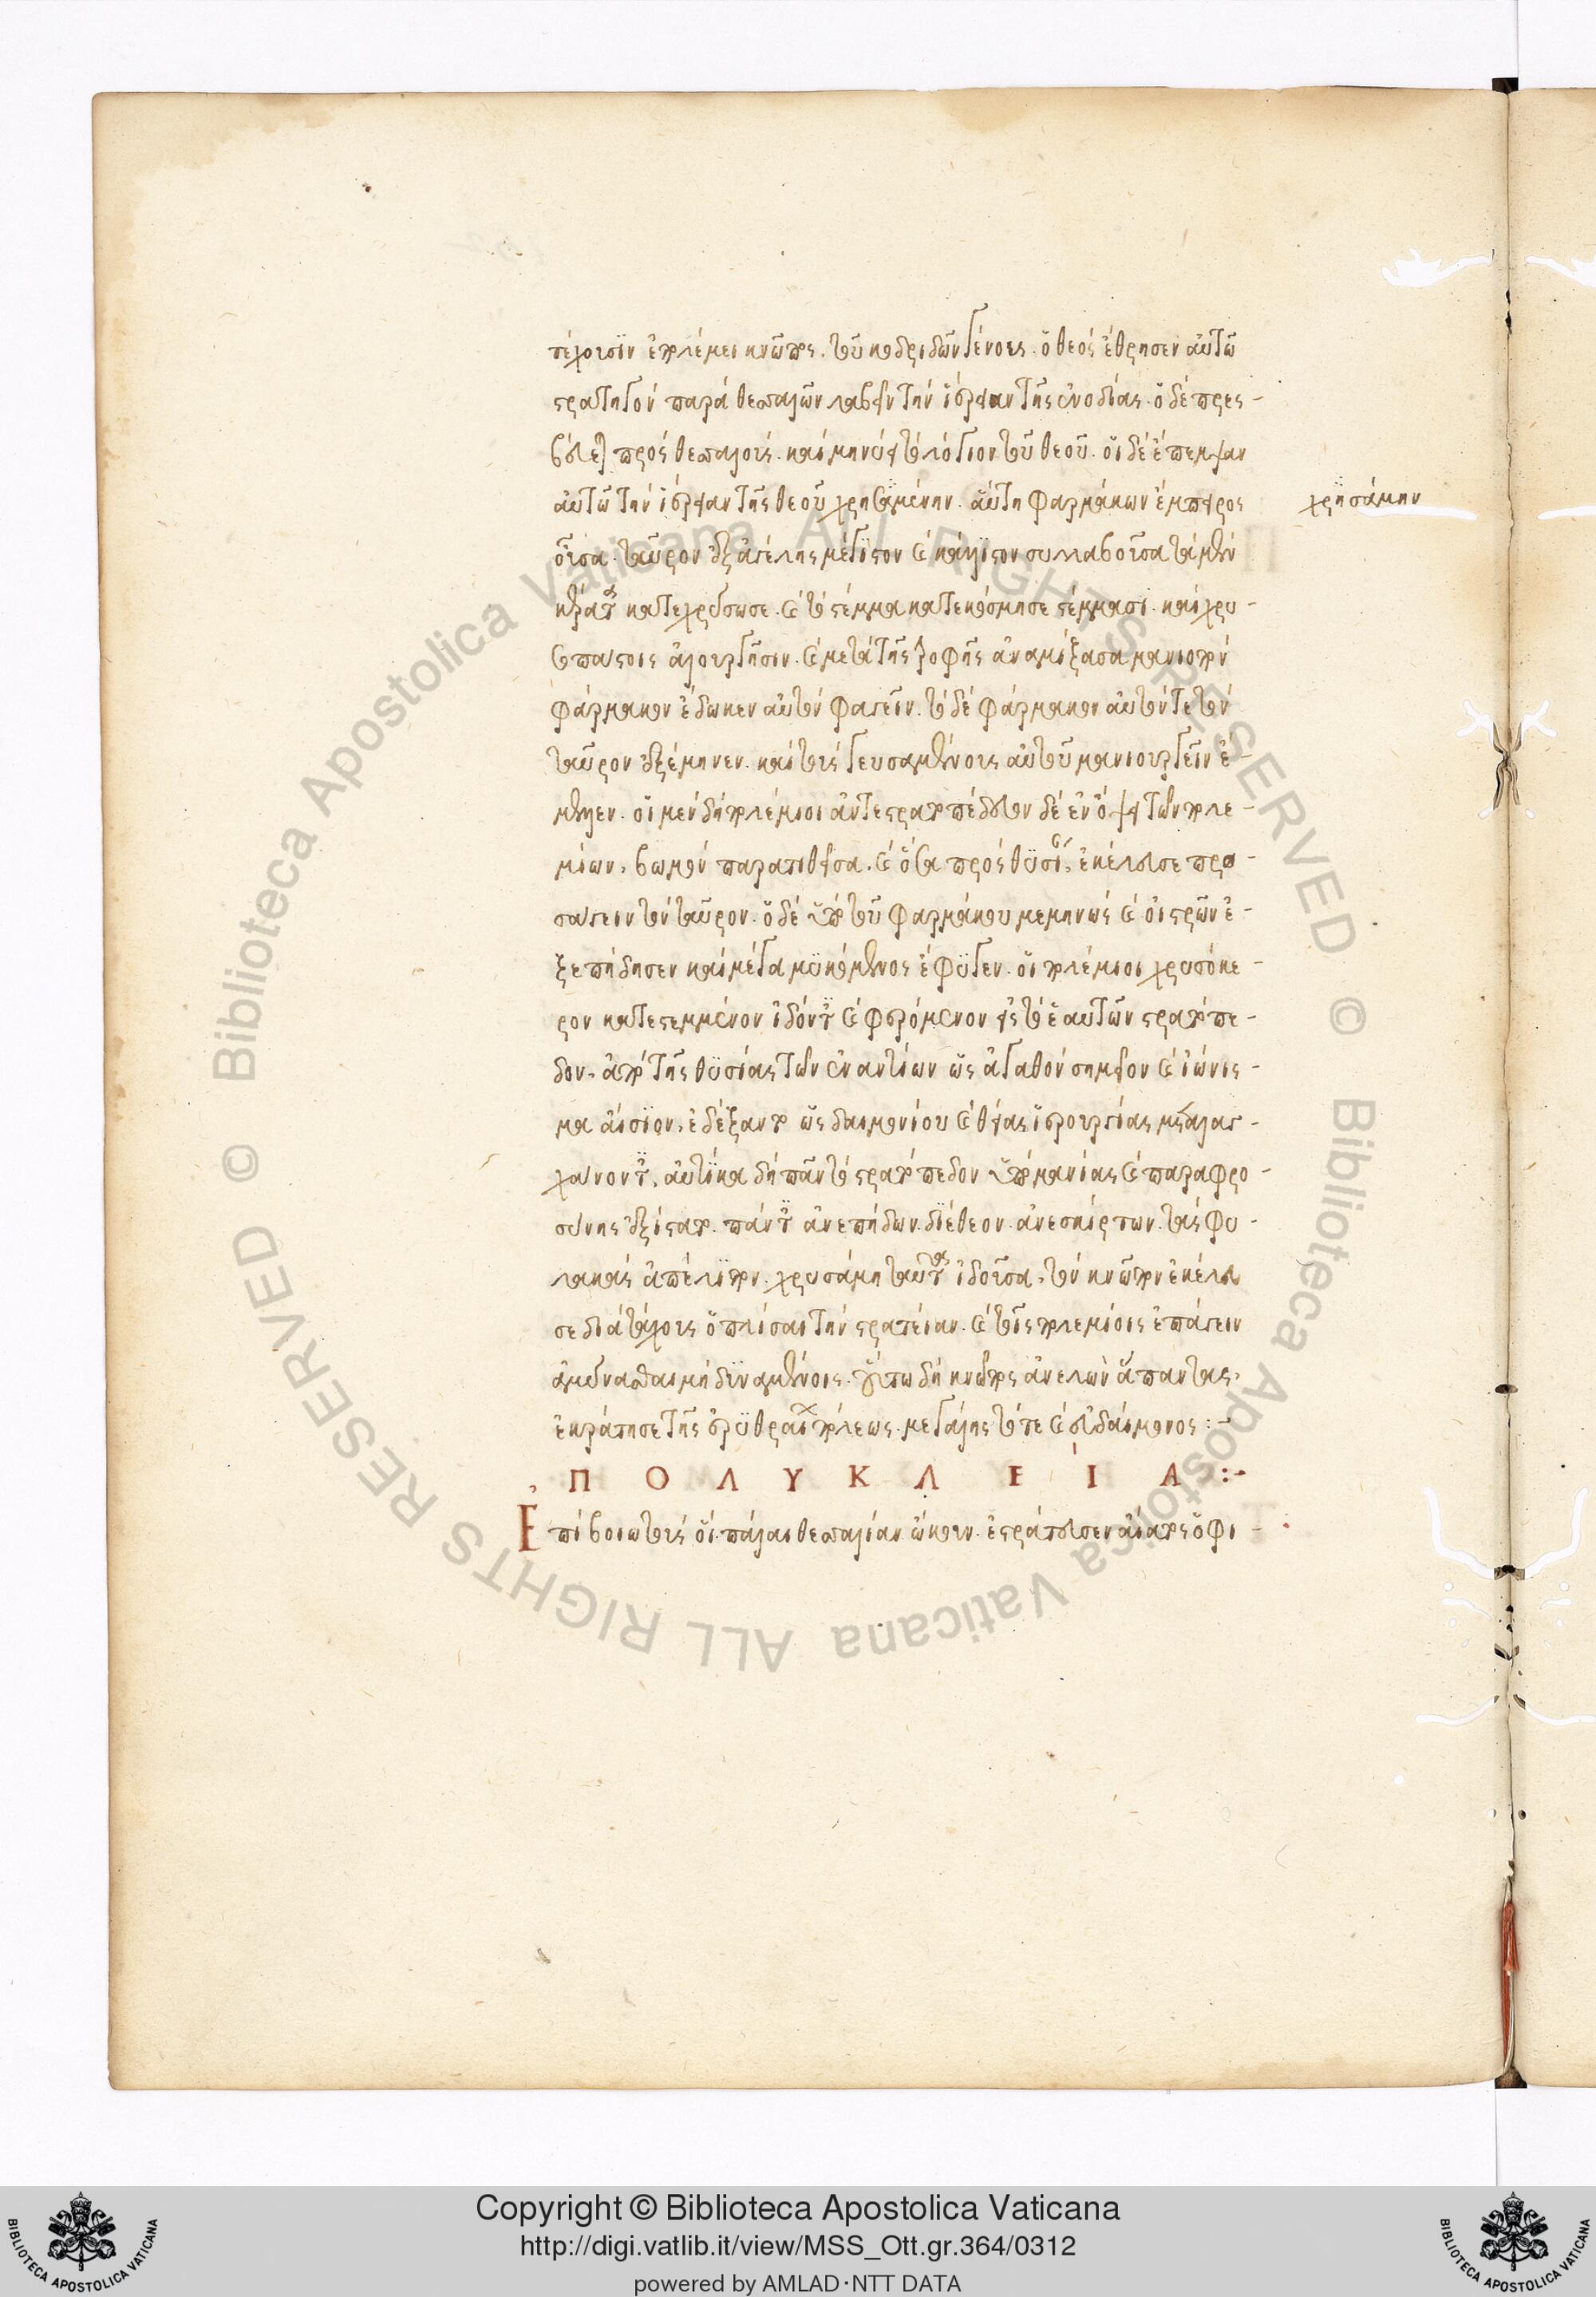 τέχουσϊν ἐπολέμει κνῶπος, τοῦ κοδριδῶν γένους. ὁ θεὸς ἔχρησεν αὐτῶ
στρατηγὸν παρὰ θεσσαλῶν λαβεῖν τὴν ἱέρειαν τῆς ἐνοδίας. ὁ δὲ πρεσ-
βεύεται πρὸς θεσσαλοὺς. καὶ μηνύει τὸ λόγιον τοῦ θεοῦ. οἱ δὲ ἔπεμψαν
αὐτῶ τὴν ἱέρειαν τῆς θεοῦ χρησαμένην. αὕτη φαρμάκων ἔμπειρος
χρϋσάμην
οὖσα. ταῦρον ἐξ ἀγέλης μέγϊστον καὶ κάλλϊστον συλλαβοῦσα τὰ μὲν
κέρατα κατεχρύσωσε. καὶ τὸ στέμμα κατεκόσμησε στέμμασι. καὶ χρυ-
σοπάστοις ἁλουργῆσιν. καὶ μετὰ τῆς τροφῆς ἀναμίξασα μανιοποιὸν
φάρμακον ἔδωκεν αὐτὸν φαγεῖν. τὸ δὲ φάρμακον αὐτόν τε τὸν
ταῦρον ἐξέμηνεν. καὶ τοὺς γευσαμένους αὐτοῦ μανιουργεῖν ἔ-
μελλεν. οἱ μὲν δὴ πολέμιοι ἀντεστρατοπέδευον δὲ ἐν ὄψει τῶν πολε-
μίων, βωμὸν παραστήσασα, καὶ ὅσα πρὸς θϋσίαν, ἐκέλευσε προ-
σάγειν τὸν ταῦρον. ὁ δὲ ὑπὸ τοῦ φαρμάκου μεμηνὼς καὶ οἰστρῶν ἐ-
ξεπήδησεν καὶ μέγα μϋκόμενος ἔφϋγεν. οἱ πολέμιοι χρυσόκε-
ρον κατεστεμμένον ἰδόντες καὶ φερόμενον εἰς τὸ ἑαυτῶν στρατόπε-
δον, ἀπὸ τῆς θϋσίας τῶν ἐναντίων ὡς ἀγαθὸν σημεῖον καὶ ἰώνισ-
μα αἴσϊον, ἐδέξαντο ὡς δαιμονίου καὶ θείας ἱερουργίας μεταλαγ-
χάνοντες, αὐτίκα δὴ πᾶν τὸ στρατόπεδον ὑπὸ μανίας καὶ παραφρο-
σύνης ἐξίστατο. πάντες ἀνεπήδων. δϊέθεον. ἀνεσκίρτων. τὰς φυ-
λακὰς ἀπέλϊπον. χρυσάμη ταῦτα ἰδοῦσα, τὸν κνῶπον ἐκέλευ
σε διὰ τάχους ὁπλίσαι τὴν στρατείαν. καὶ τοῖς πολεμίοις ἐπάγειν
ἀμύνασθαι μὴ δϋναμένοις. οὕτω δὴ κνῶπος ἀνελὼν ἅπαντας,
ἐκράτησε τῆς ἐρϋθραίων πόλεως. μεγάλης τότε καὶ εὐδαίμονος :-
ΠΟΛΥΚΛΕΙΑ :-
Ἐπὶ βοιωτοὺς οἳ πάλαι θεσσαλίαν ᾤκουν. ἐστράτευσεν αἴατος ὁ φι-
Copyright © Biblioteca Apostolica Vaticana
http://digi.vatlib.it/view/MSS_Ott.gr.364/0312
powered by AMLAD·NTT DATA